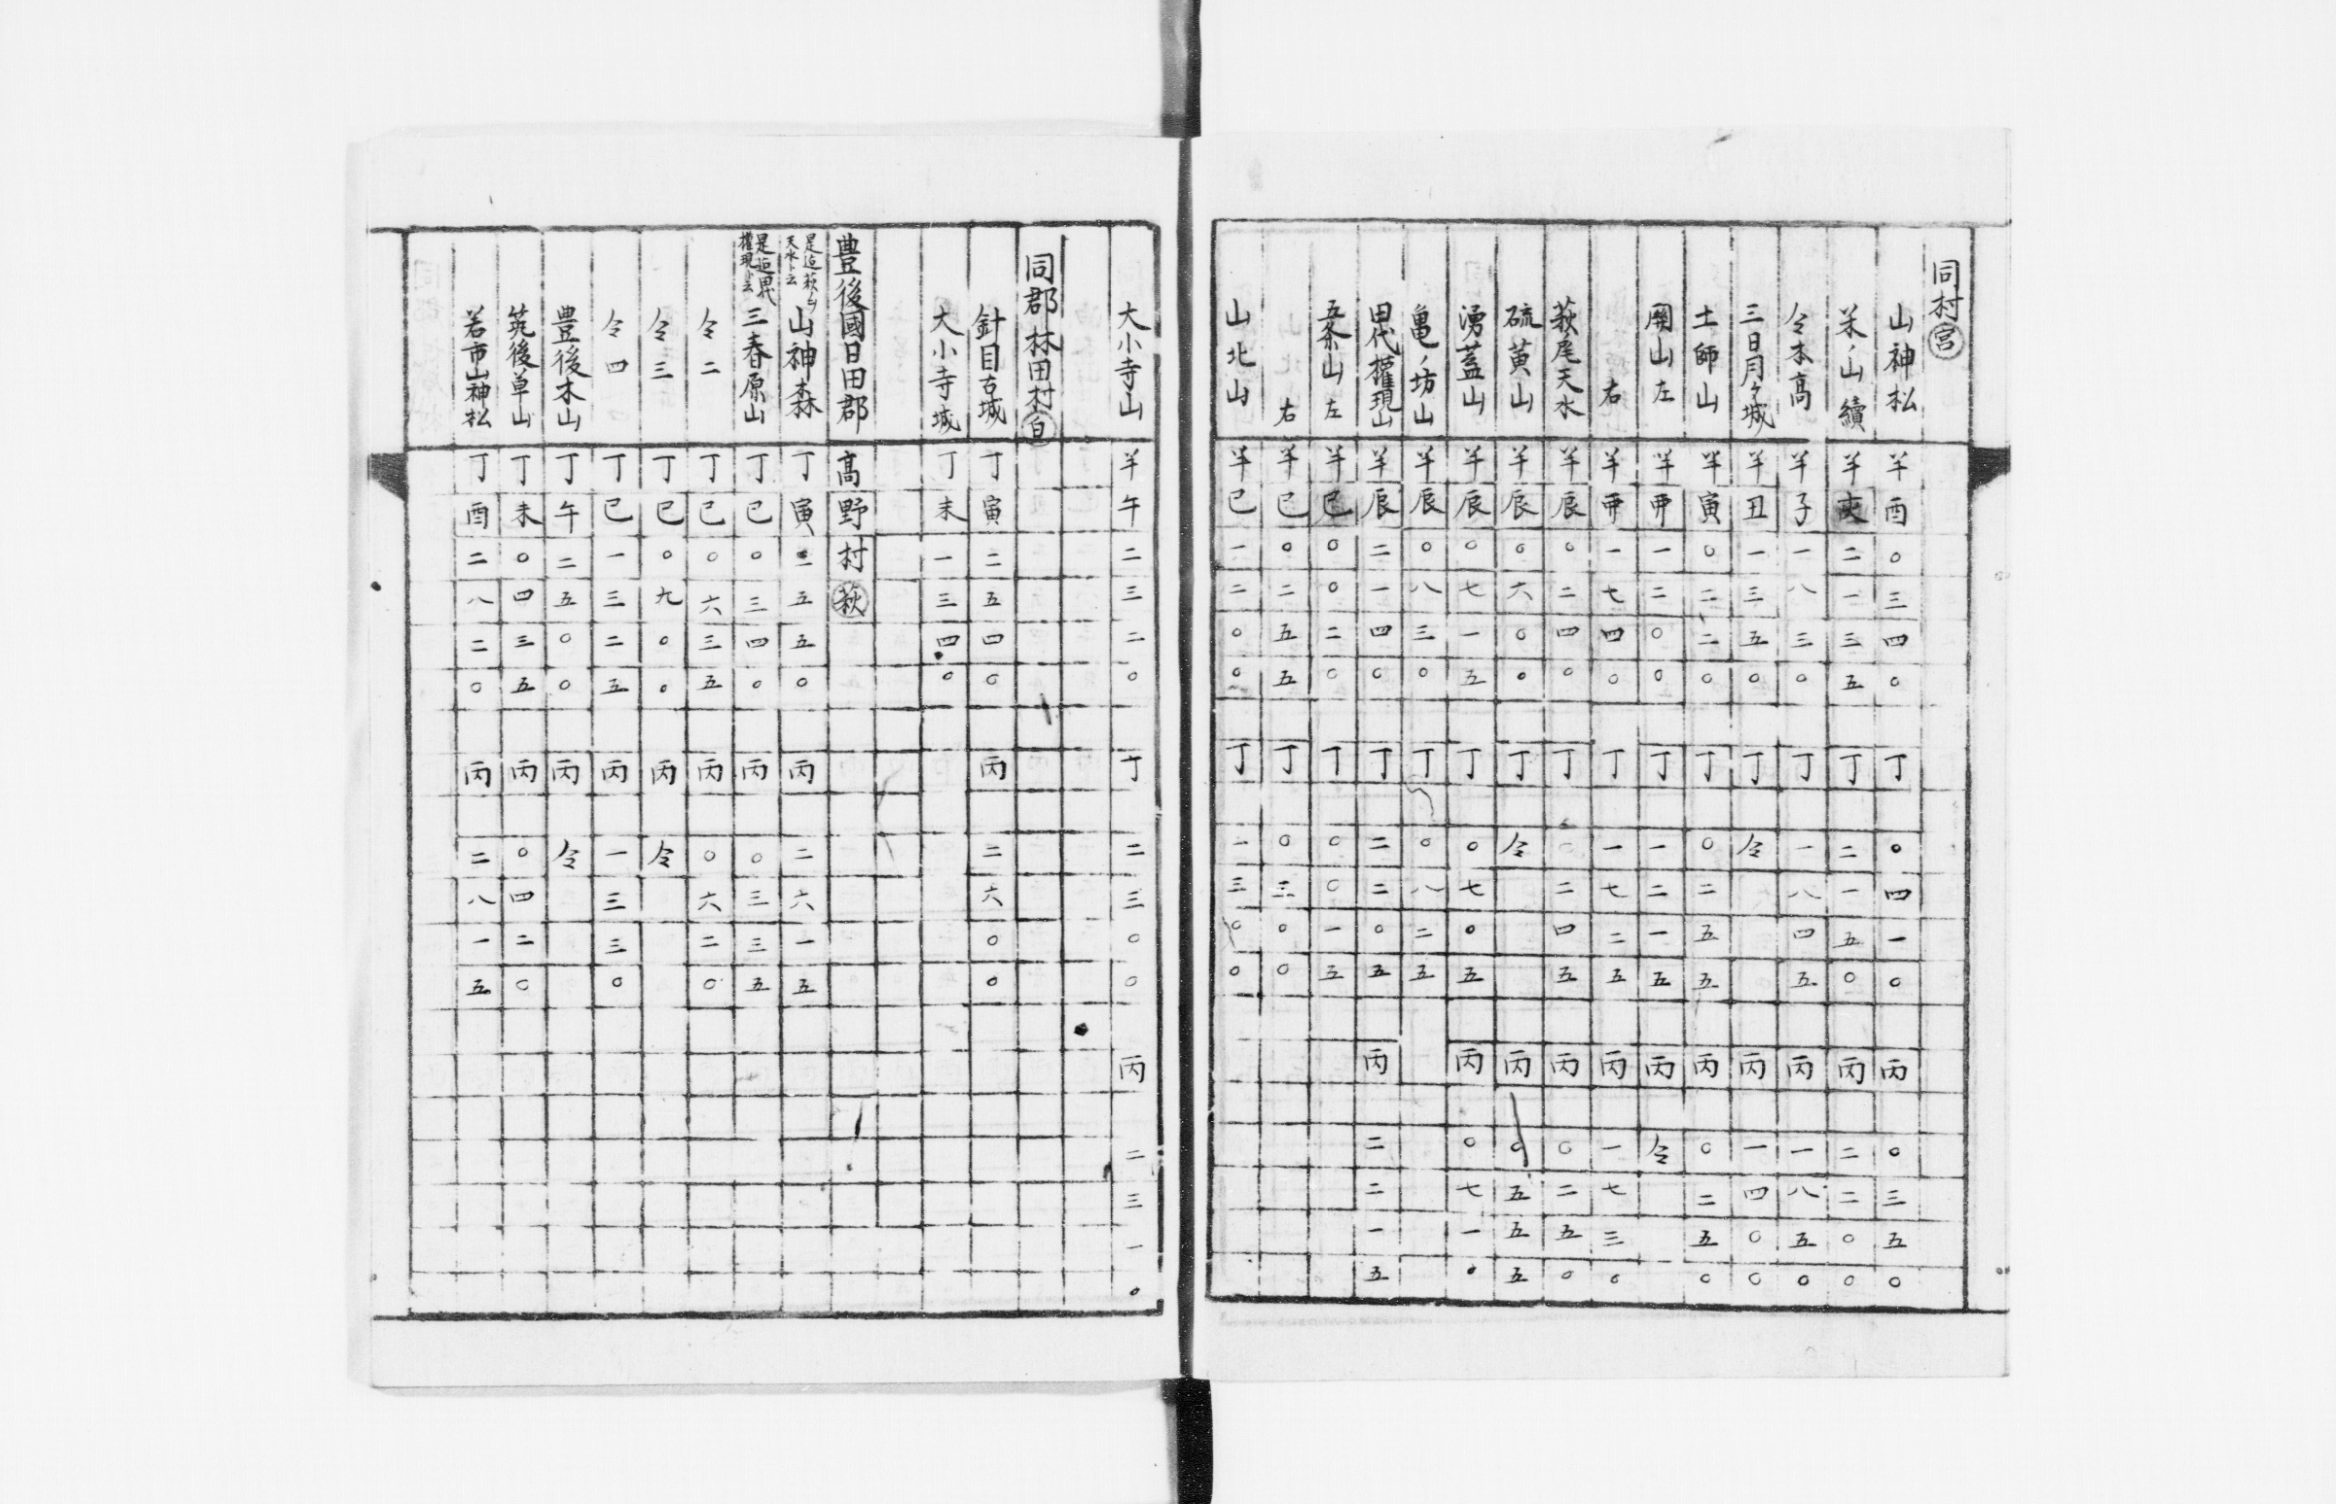 同村宮
山神松 半酉〇三四〇 丁〇四一〇 丙〇三五〇
米ノ山續 半二一三五 丁二一五〇 丙二二〇〇
仝本高 半子一八三〇 丁一八四五 丙一八五〇
三日月ヶ城 半丑一三五〇 丁仝 丙一四〇〇
土師山 半寅〇二二〇 丁〇二五五 丙〇二五〇
開山左 半一二〇〇 丁一二一五 丙仝
右 半一七四〇 丁一七二五 丙一七三〇
萩尾天水 半辰〇二四〇 丁〇二四五 丙〇二五〇
硫黄山 半辰〇六〇〇 丁仝 丙〇五五五
湧蓋山 半辰〇七一五 丁〇七〇五 丙〇七一〇
亀ノ坊山 半辰〇八三〇 丁〇八二五
田代權現山 半辰二一四〇 丁二二〇五 丙二二一五
五条山左 半巳〇〇二〇 丁〇〇一五
右 半巳〇二五五 丁〇三〇〇
山北山 半巳一二〇〇 丁一三〇〇
大小寺山 半午二三二〇 丁二三〇〇 丙二三一〇
同郡林田村白
針目古城 丁寅二五四〇 丙二六〇〇
大小寺城 丁未一三四〇
豊後國日田郡高野村萩
是迄萩尾天水ト云 山神森 丁寅二五五〇 丙二六一五
是迄田代權現ト云 三春原山 丁巳〇三四〇 丙〇三三五
仝二 丁巳〇六三五 丙〇六二〇
仝三 丁巳〇九〇〇 丙仝
仝四 丁巳一三二五 丙一三三〇
豊後本山 丁午二五〇〇 丙仝
筑後草山 丁未〇四三五 丙〇四二〇
若市山神松 丁酉二八二〇 丙二八一五